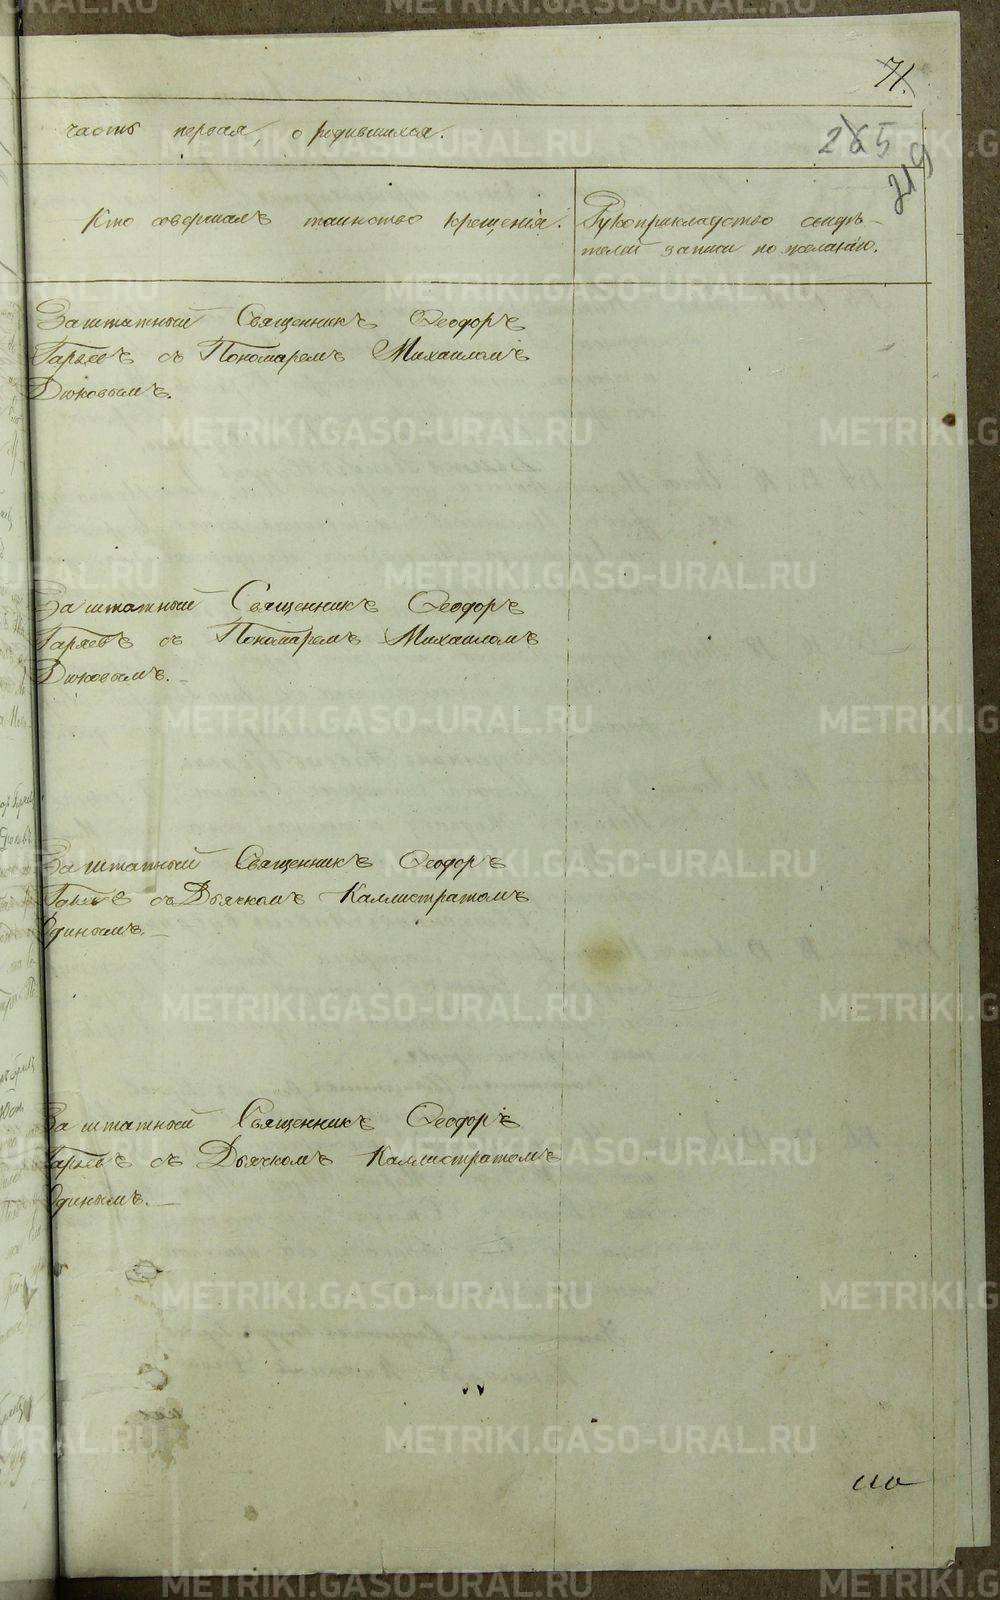 71.
часть первая, о родившихся.
265
219
Кто совершалъ таинство крещенія.
Рукоприкладство свидѣ-
телей записи по желанію.
Заштатный Священникъ Ѳеодоръ
Гаряевъ съ Пономаремъ Михаиломъ
Дюковымъ.
Заштатный Священникъ Ѳеодоръ
Гаряевъ съ Пономаремъ Михаиломъ
Дюковымъ.-
Заштатный Священникъ Ѳеодоръ
Гаряевъ съ Дьячкомъ Каллистратомъ
Одинымъ.-
Заштатный Священникъ Ѳеодоръ
Гаряевъ съ Дьячкомъ Каллистратомъ
Одинымъ.-
METRIKI.GASO-URAL.RU